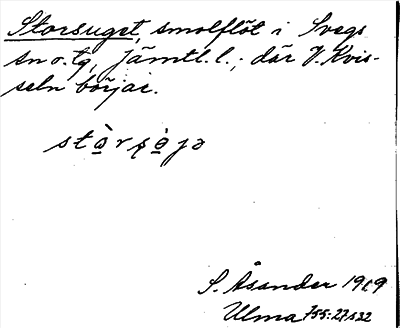 Storsuget, smolflöt i Svegs
sn o. tg, Jämtl. l.; där V. Kvis-
seln börjar.
stòrsògə
S. Åsander 1919
Ulma 755:27132